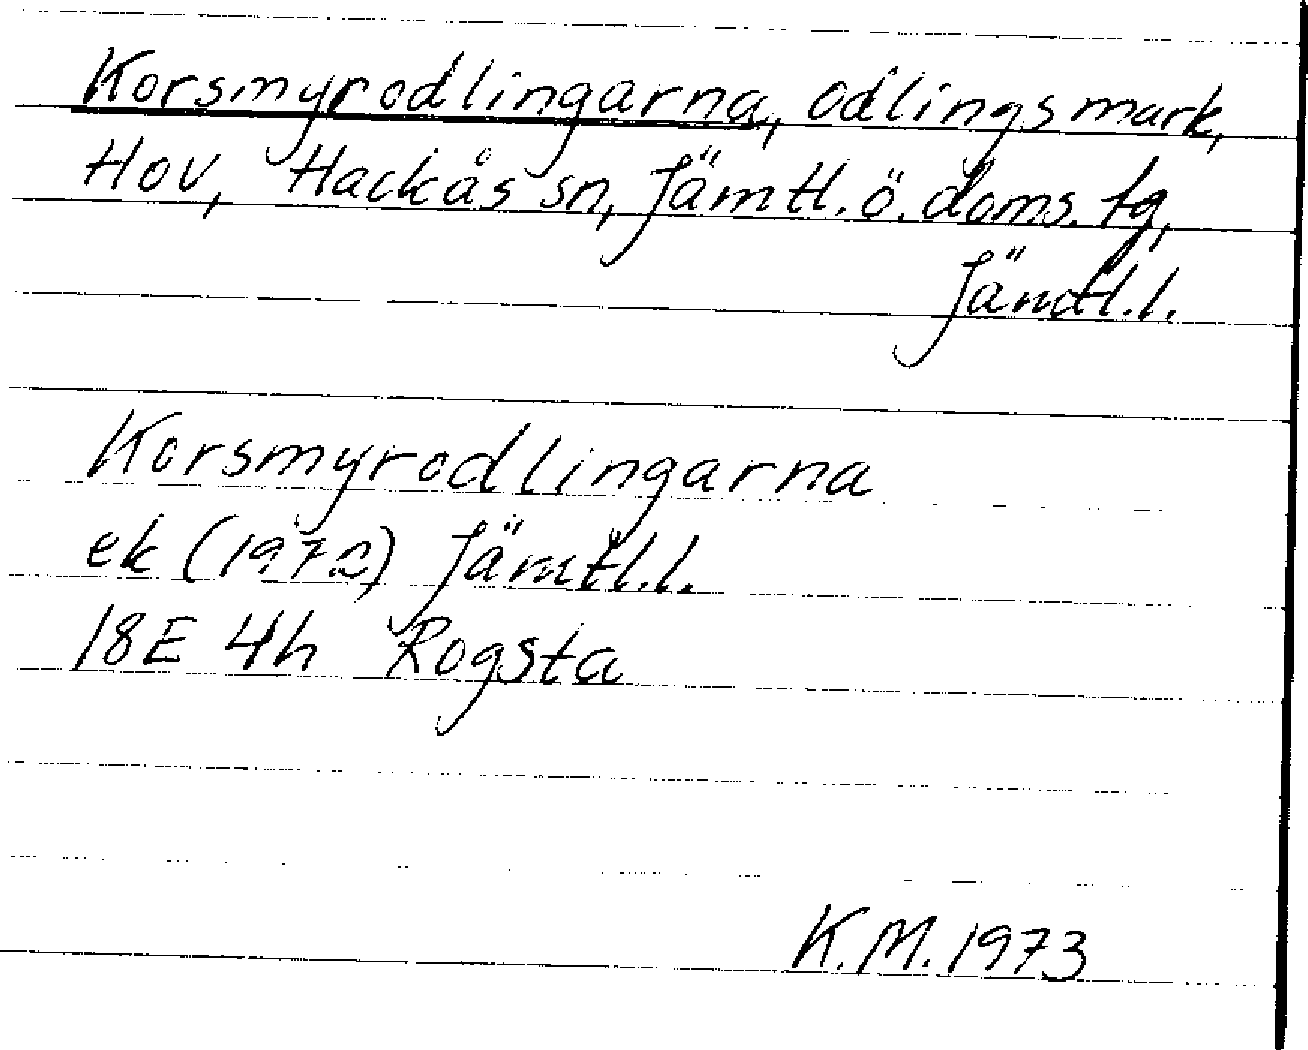 Korsmyrodlingarna, odlingsmark,
Hov, Hackås sn, Jämtl. ö. doms. tg,
Jämtl. l.
Korsmyrodlingarna
ek (1972) Jämtl. l.
18E 4h Rogsta
K.M. 1973